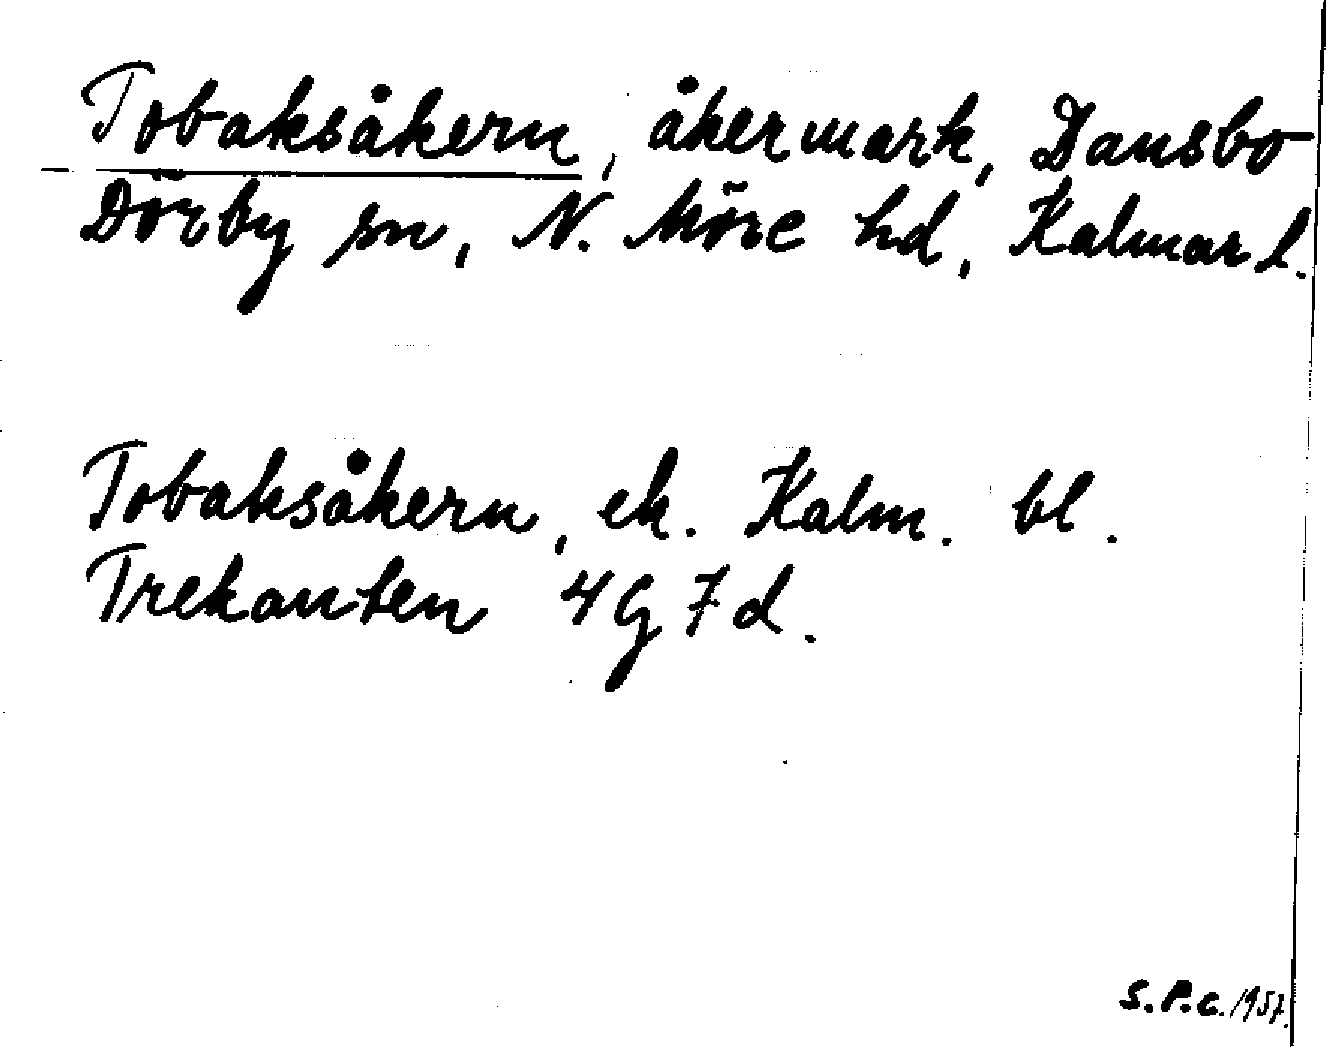 Tobaksåkern, åkermark, Dansbo
Dörby sn, N. Möre hd, Kalmar l.
Tobaksåkern, ek. Kalm. bl.
Trekanten 4G7d.
S.P.G. 1957.